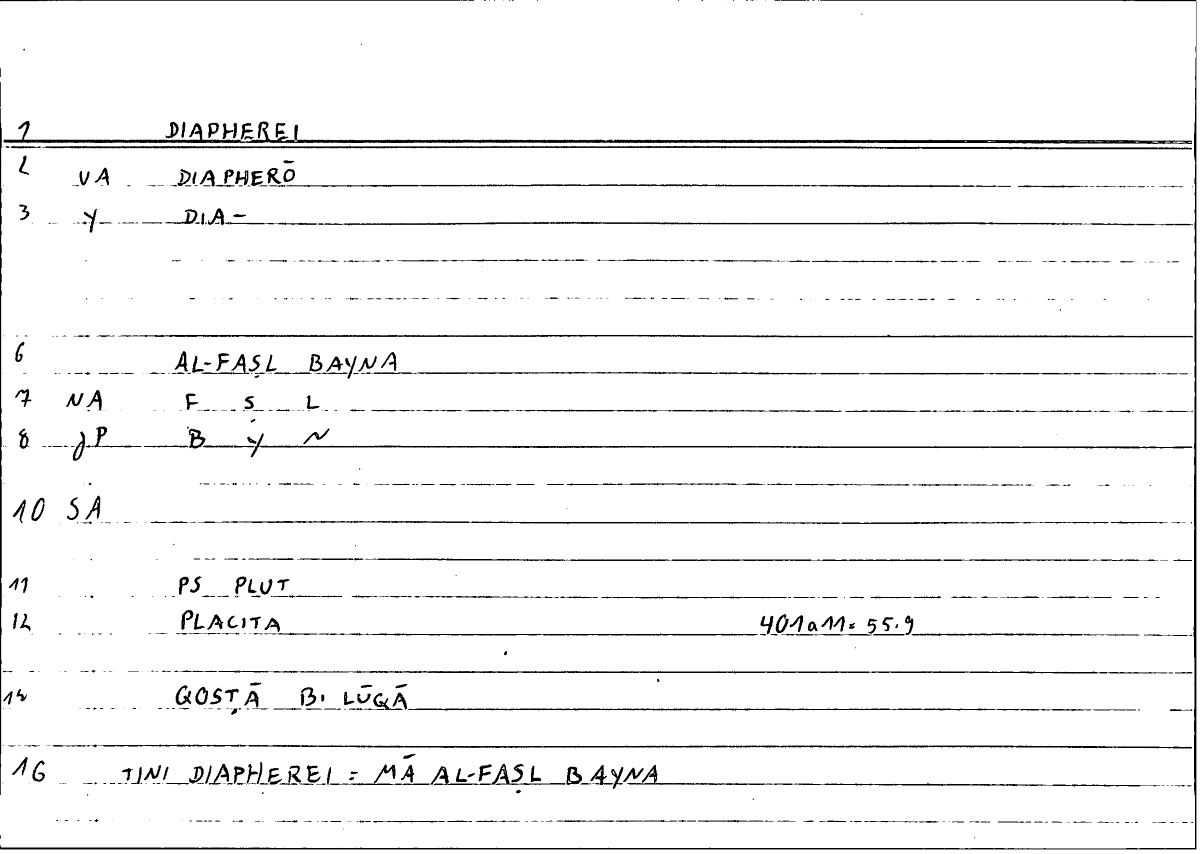 1 DIAPHEREI
2 VA DIAPHERŌ
3 Y DIA-
6 AL-FAṢL BAYNA
7 NA F Ṣ L
8 JP B Y N
10 SA
11 PS PLUT
12 PLACITA 401a11= 55.9
14 QOSṬĀ B. LŪQĀ
16 TINI DIAPHEREI = MĀ AL-FAṢL BAYNA